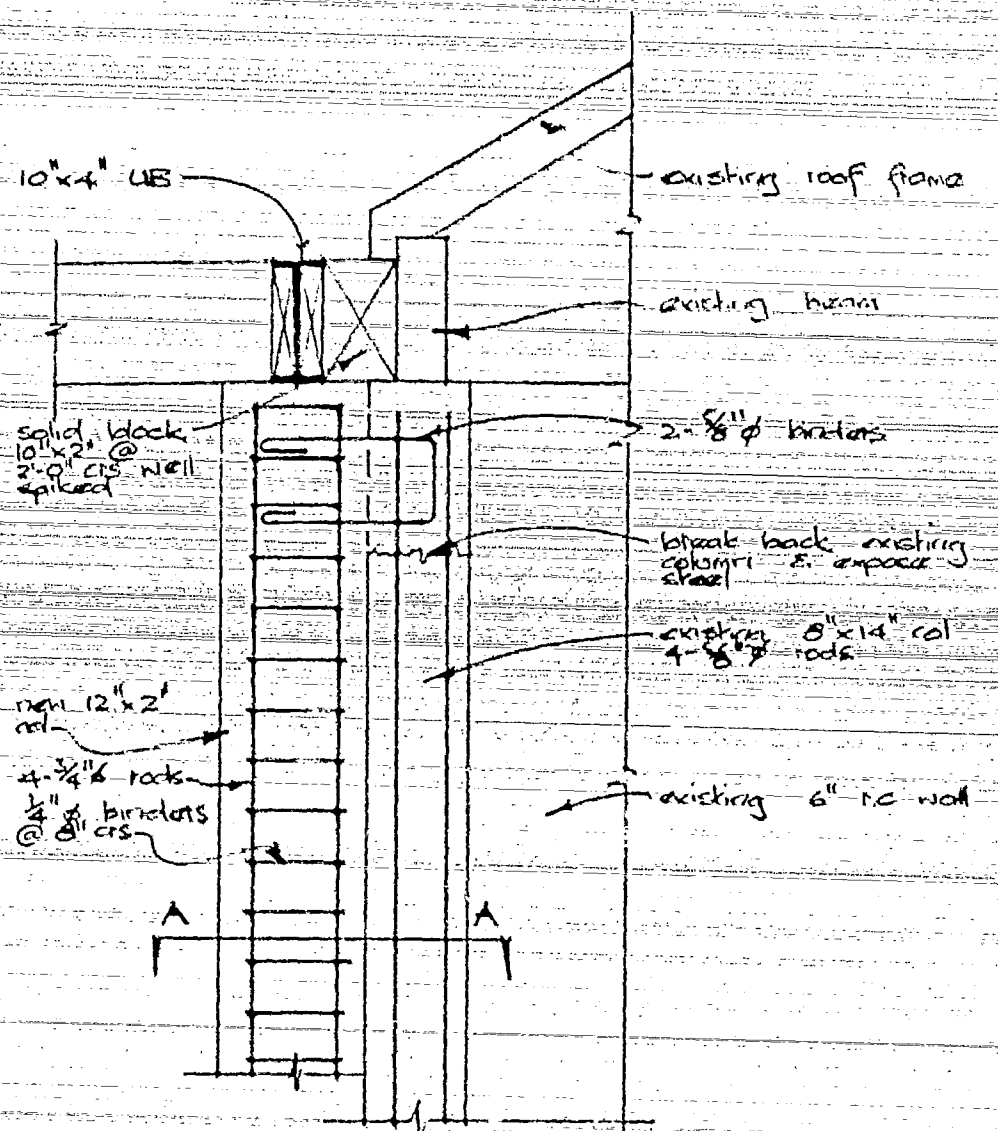 10"x4" UB
existing roof frame
existing beam
solid block
10"x2" @
2'-0" crs well
spiked
2-5/8"φ binders
break back existing
column & expose
steel
existing 8"x14" col
4-5/8"φ rods
new 12"x2'
col
4-3/4"φ rods
1/4"φ binders
@ 8" crs
existing 6" r.c wall
A A